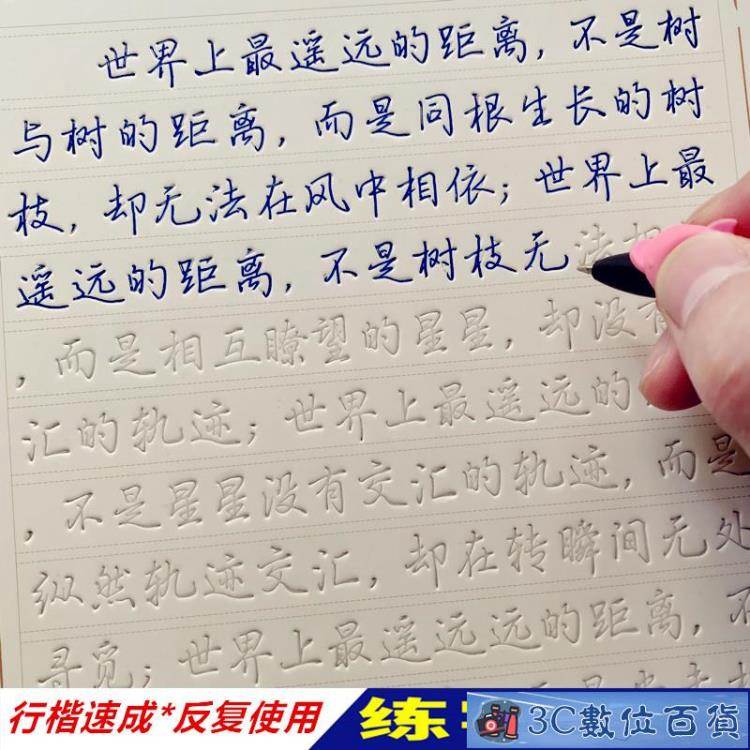 世界上最遥远的距离,不是树
与树的距离,而是同根生长的树
枝,却无法在风中相依;世界上最
遥远的距离,不是树枝无法相
,而是相互瞭望的星星,却没有
汇的轨迹;世界上最遥远的
,不是星星没有交汇的轨迹,而是
纵然轨迹交汇,却在转瞬间无处
寻觅;世界上最遥远远的距离,不
行楷速成*反复使用
练
3C數位百貨